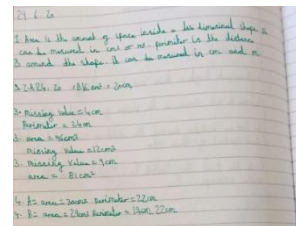 24.6.20
1. Area is the amount of space inside a two dimensional shape it
can be measured in cm² or m². perimeter is the distance
around the shape. it can be measured in cm and m
3. missing value = 4cm
Perimeter = 24cm
3. area = 96cm²
missing value = 12cm²
3. missing value = 9cm
area = 81cm²
4. A = area = 20cm² Perimeter = 22cm
4. B = area = 24cm² Perimeter = 22cm